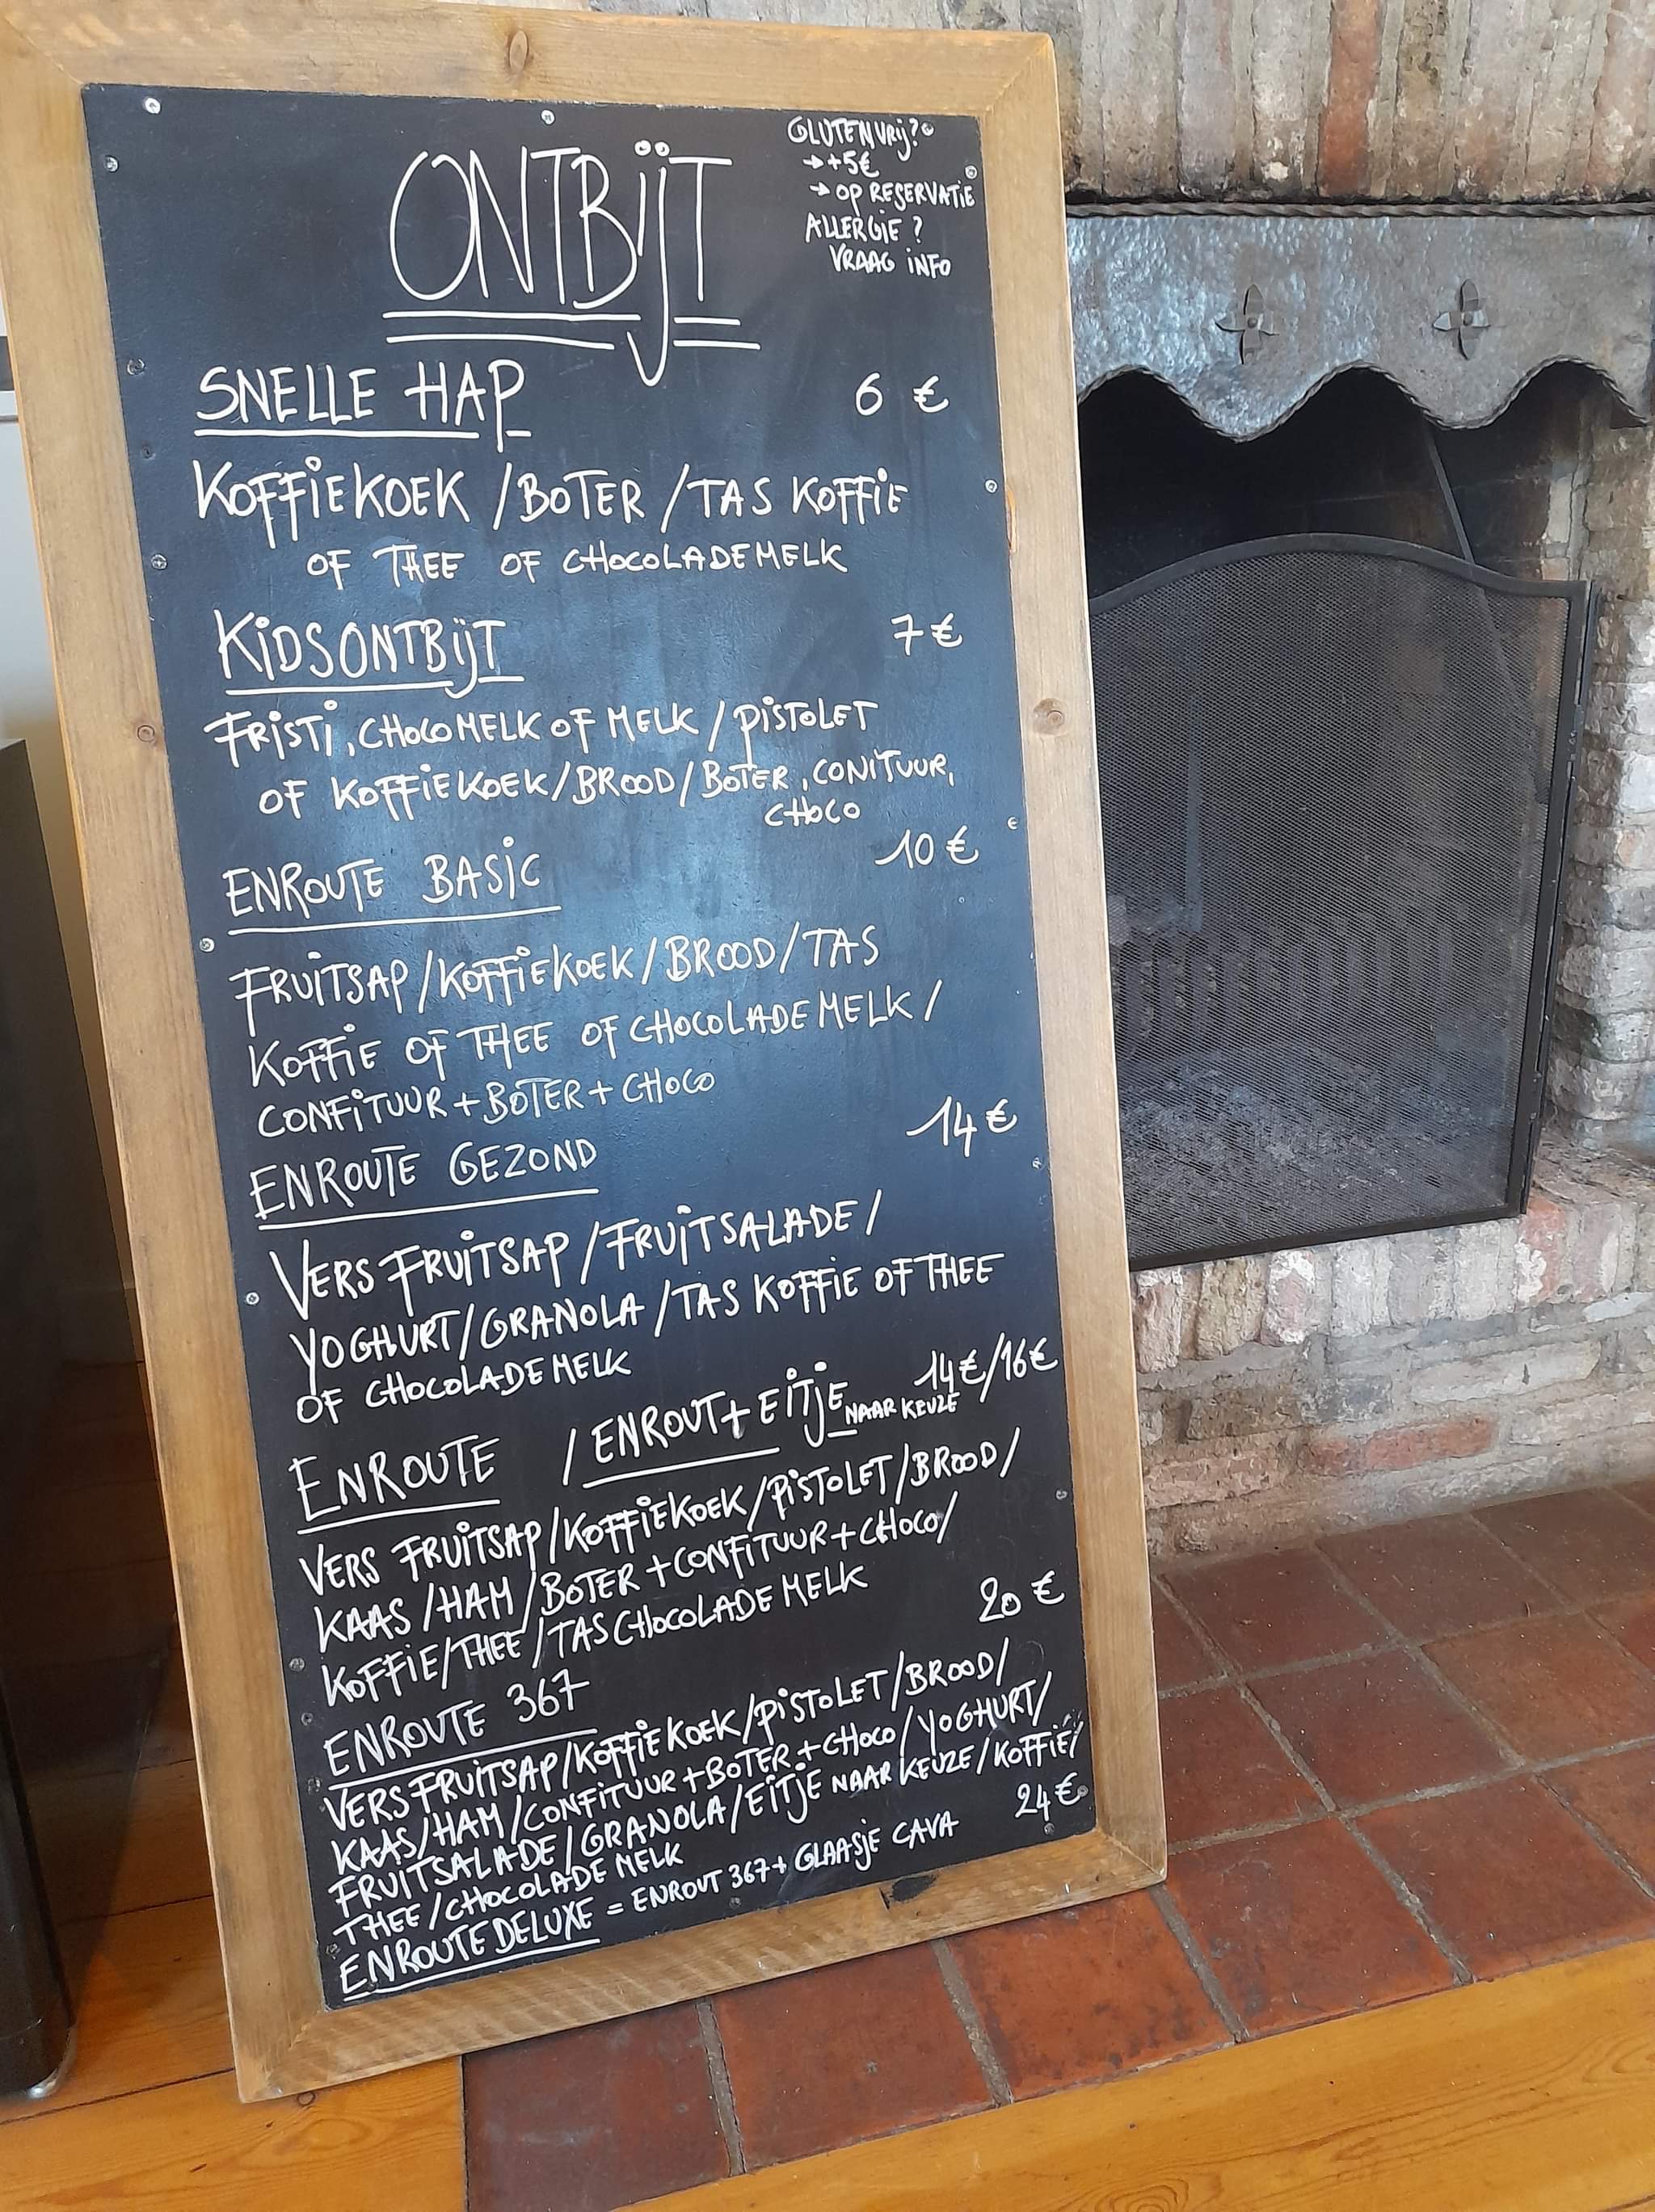 ONTBIJT
GLUTENVRIJ?
→ +5€
→ OP RESERVATIE
ALLERGIE?
VRAAG INFO
SNELLE HAP 6 €
KOFFIEKOEK / BOTER / TAS KOFFIE
OF THEE OF CHOCOLADEMELK
KIDSONTBIJT 7 €
FRISTI, CHOCOMELK OF MELK / PISTOLET
OF KOFFIEKOEK / BROOD / BOTER, CONITUUR,
CHOCO
ENROUTE BASIC 10 €
FRUITSAP / KOFFIEKOEK / BROOD / TAS
KOFFIE OF THEE OF CHOCOLADEMELK /
CONFITUUR + BOTER + CHOCO
ENROUTE GEZOND 14 €
VERS FRUITSAP / FRUITSALADE /
YOGHURT / GRANOLA / TAS KOFFIE OF THEE
OF CHOCOLADEMELK
ENROUTE / ENROUT + EITJE NAAR KEUZE 14€/16€
VERS FRUITSAP / KOFFIEKOEK / PISTOLET / BROOD /
KAAS / HAM / BOTER + CONFITUUR + CHOCO /
KOFFIE / THEE / TAS CHOCOLADE MELK
ENROUTE 367 20 €
VERS FRUITSAP / KOFFIEKOEK / PISTOLET / BROOD /
KAAS / HAM / CONFITUUR + BOTER + CHOCO / YOGHURT /
FRUITSALADE / GRANOLA / EITJE NAAR KEUZE / KOFFIE /
THEE / CHOCOLADE MELK
ENROUTE DELUXE = ENROUT 367 + GLAASJE CAVA 24 €